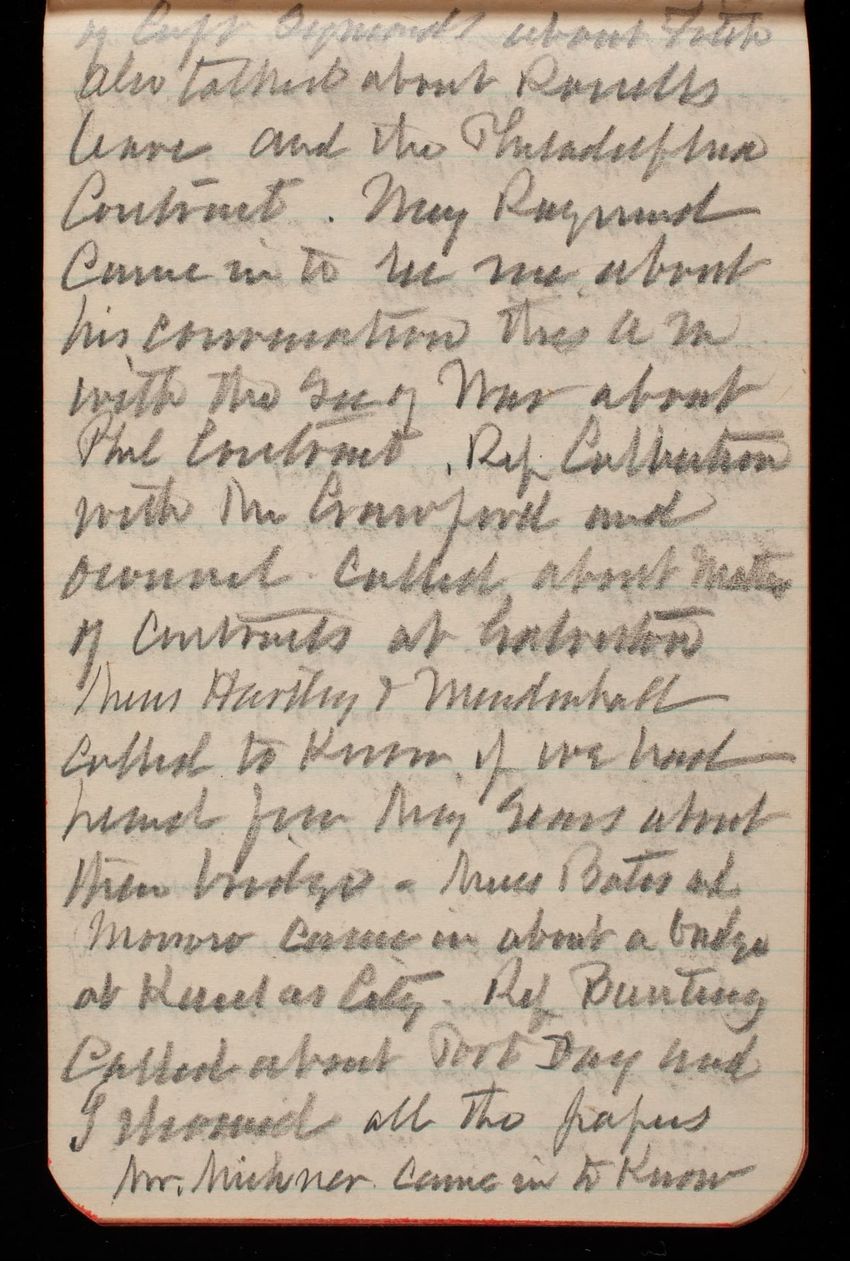 of Capt Symonds about
also talked about Roselle
leave and the Philadelphia
Contract. Maj Raymond
Came in to see me about
his conversation this A M
with the Sec of War about
Phil Contract. Rep Culberson
with Mr Crawford and
called about Matter
of Contracts at Galveston
Hartley & Mendenhall
called to know if we had
heard from Maj Sears about
their bridge - Bates and
Monroe came in about a bridge
at Kansas City. Rep Bunting
Called about Port Day and
I showed all the papers
Mr. Michner came in to know